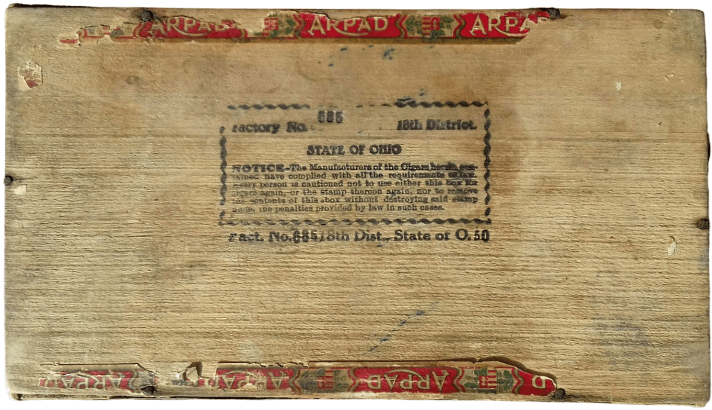 ARPAD ARPAD ARPAD
Factory No. 685 18th District.
STATE OF OHIO
NOTICE-The Manufacturers of the Cigars herein con-
tained have complied with all the requirements of law.
Every person is cautioned not to use either this box for
cigars again, or the stamp thereon again, nor to remove
the contents of this box without destroying said stamp
the penalties provided by law in such cases.
Fact. No. 685 18th Dist., State of O. 50
ARPAD ARPAD ARPAD